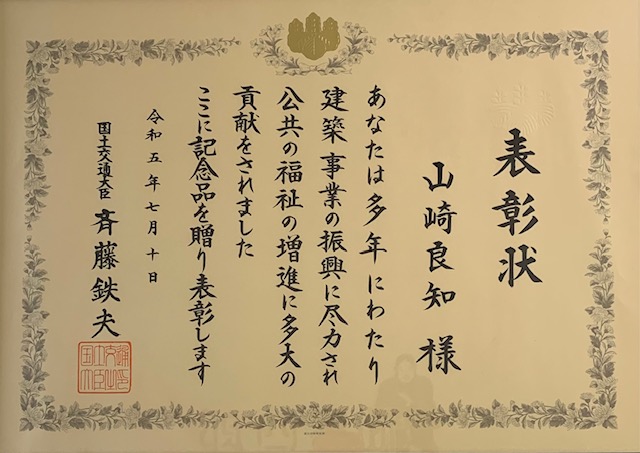 表彰状
山崎良知 様
あなたは多年にわたり
建築事業の振興に尽力され
公共の福祉の増進に多大の
貢献をされました
ここに記念品を贈り表彰します
令和五年七月十日
国土交通大臣 斉藤鉄夫